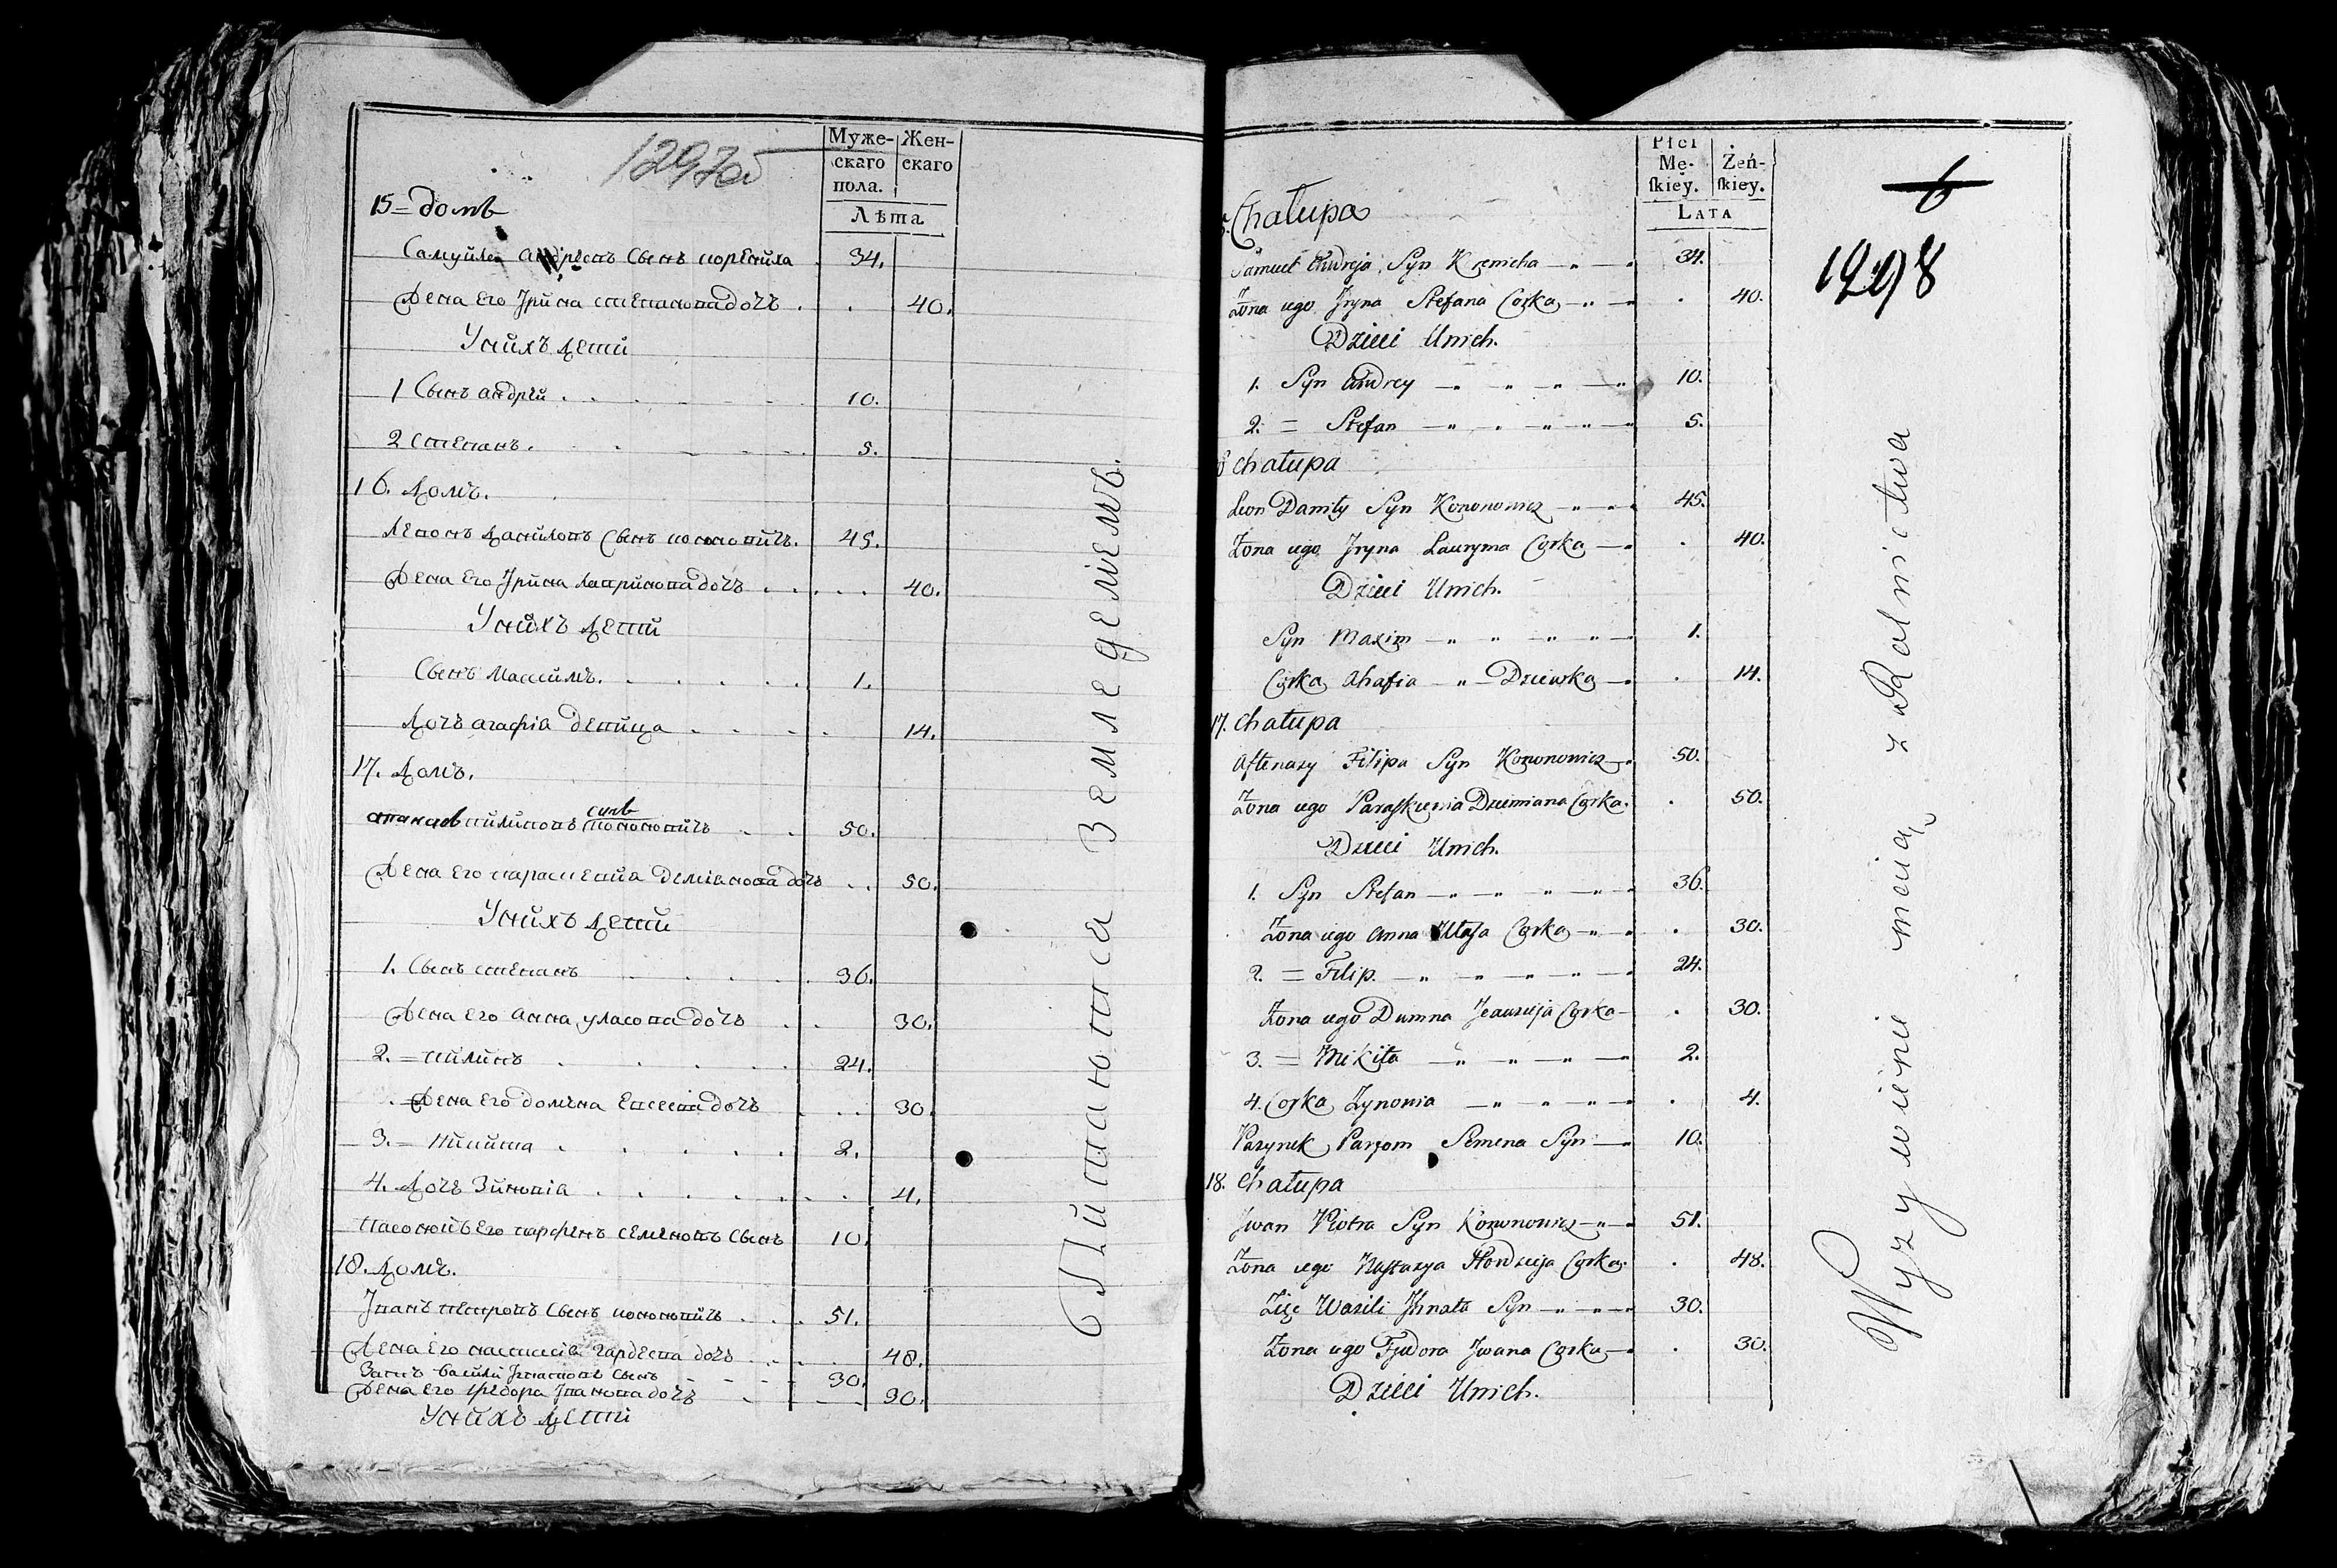 1297об
Муже-
скаго
пола.
Жен-
скаго
Лѣта
15 = домъ
Самуйло андреевъ Сынъ корениха 34.
Жена Его Ирина степановадочь 40.
Унихъ дети
1 Сынъ андрей 10.
2 степанъ. 5.
16. домъ.
Левонъ даниловъ Сынъ кононовичъ. 45.
Жена Его Ирина лавринова дочь 40.
Унихъ дети
Сынъ Максимъ. 1.
дочь агафія девица 14.
17. домъ.
афанасъ пилиповъ сынъ кононовичъ 50.
Жена Его параскевия демьянова дочь 50.
Унихъ дети
1. Сынъ степанъ 36.
Жена Его Анна уласова дочь 30.
2. = пилипъ 24.
Жена Его домъна Евсеева дочь 30
3. = Никита 2.
4. дочь Зиновія 4.
Пасонокъ Его парфенъ семеновъ Сынъ 10.
18. домъ.
Иванъ петровъ Сынъ кононовичъ 51.
Жена Его настасія гардеева дочь 48.
Зять Василй Игнатовъ Сынъ 30.
Жена Его федора Иванова дочь 30.
Унихъ дети
Питаютца Земледелиемъ.
Płci
Mę-
skiey.
Żeń-
skiey.
LATA
6
1298
Chałupa
Samuel Andreja Syn Krenicha 34.
Żona iego Iryna Stefana Corka 40.
Dzieci Unich.
1. Syn Andrey 10.
2. = Stefan 5.
chałupa
Leon Daniły Syn Kononowicz 45.
Żona iego Iryna Lauryna Corka 40.
Dzieci Unich.
Syn Maxim 1.
Corka Ahafia Dziewka 14.
17. chałupa
Aftenazy Filipa Syn Kononowicz 50.
Żona iego Paraskiewia Dziemiana Corka. 50.
Dzieci Unich.
1. Syn Stefan 36.
Żona iego Anna Ułasa Corka 30.
2. = Filip. 24.
Żona iego Dumna Jeauzieja Corka 30.
3. = Mikita 2.
4. Corka Zynowia 4.
Pazynek Parfom Semena Syn 10.
18. chałupa
Jwan Piotra Syn Kononowicz 51.
Żona iego Nastazya Hordzieja Corka. 48.
Zięc Wasili Ihnata Syn 30.
Żona iego Fiedora Jwana Corka 30.
Dzieci Unich.
Wyzywienie maią z Rolnictwa